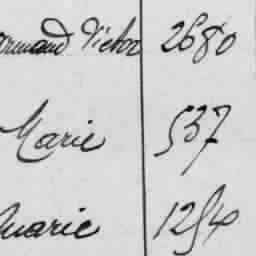 Armand Victor 2680
Marie 537
Marie 1254